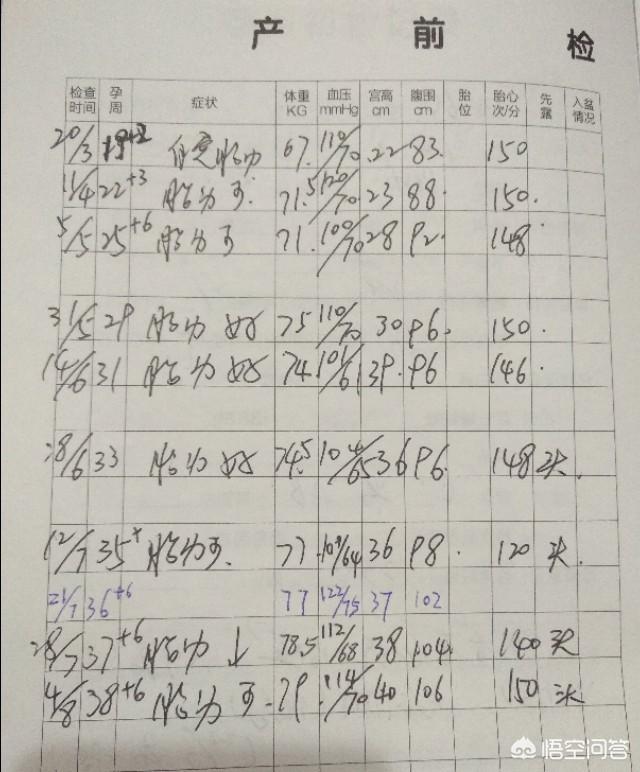 产 前 检
检查时间 孕周 症状 体重KG 血压mmHg 宫高cm 腹围cm 胎位 胎心次/分 先露 入盆情况
20/3 19+2 胎动 67. 110/70 22 83. 150
11/4 22+3 胎动可. 71.5 120/70 23 88. 150.
5/5 25+6 胎动可 71. 100/70 28 92. 148
31/5 29 胎动好 75 110/70 30 96. 150.
14/6 31 胎动好 74 101/61 39. 96 146.
28/6 33 胎动好 74.5 104/65 36 96. 148 头.
12/7 35+ 胎动可. 77. 109/64 36 98. 120 头.
21/7 36+6 77 122/75 37 102
28/7 37+6 胎动↓ 78.5 112/68 38 104. 140 头
4/8 38+6 胎动可. 79. 114/70 40 106 150 头
悟空问答